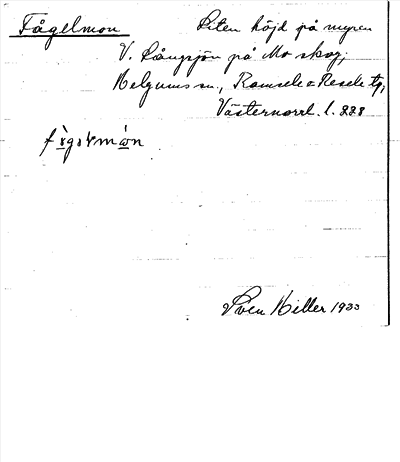 Fågelmon Liten höjd på myren
V. Långsjön på Mo skog,
Helgums sn., Ramsele o Resele tg,
Västernorrl. l. 228
Sven Hiller 1933